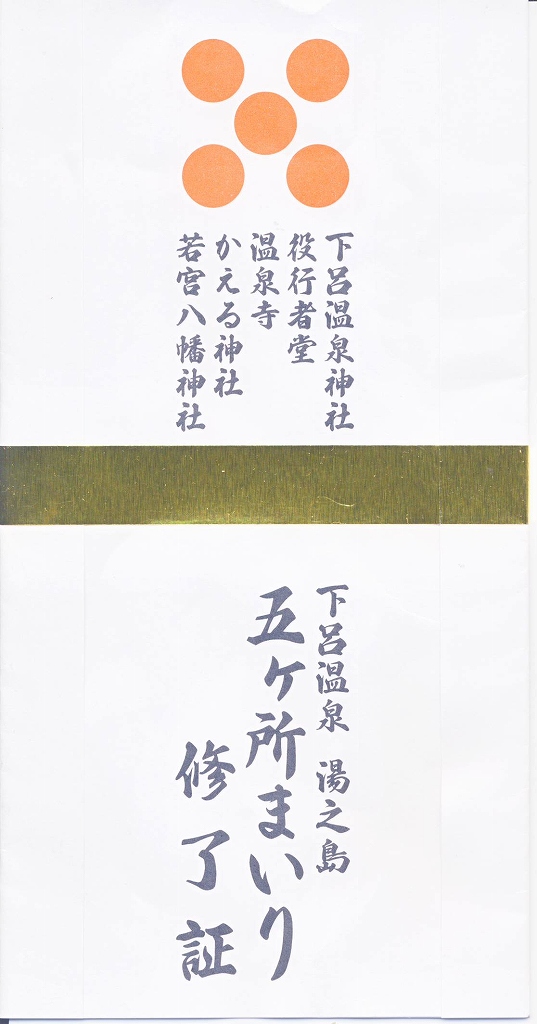 下呂温泉神社
役行者堂
温泉寺
かえる神社
若宮八幡神社
下呂温泉 湯之島
五ケ所まいり
修了証